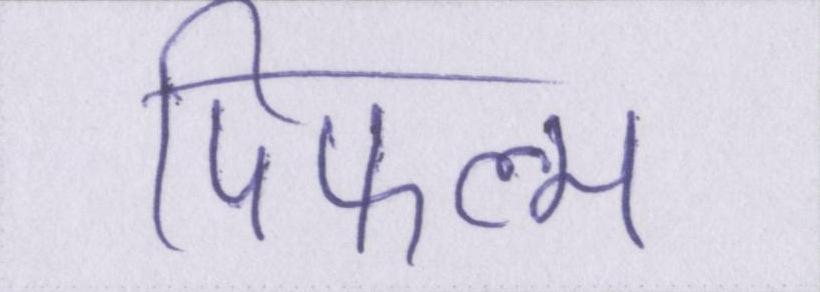 पिफल्म